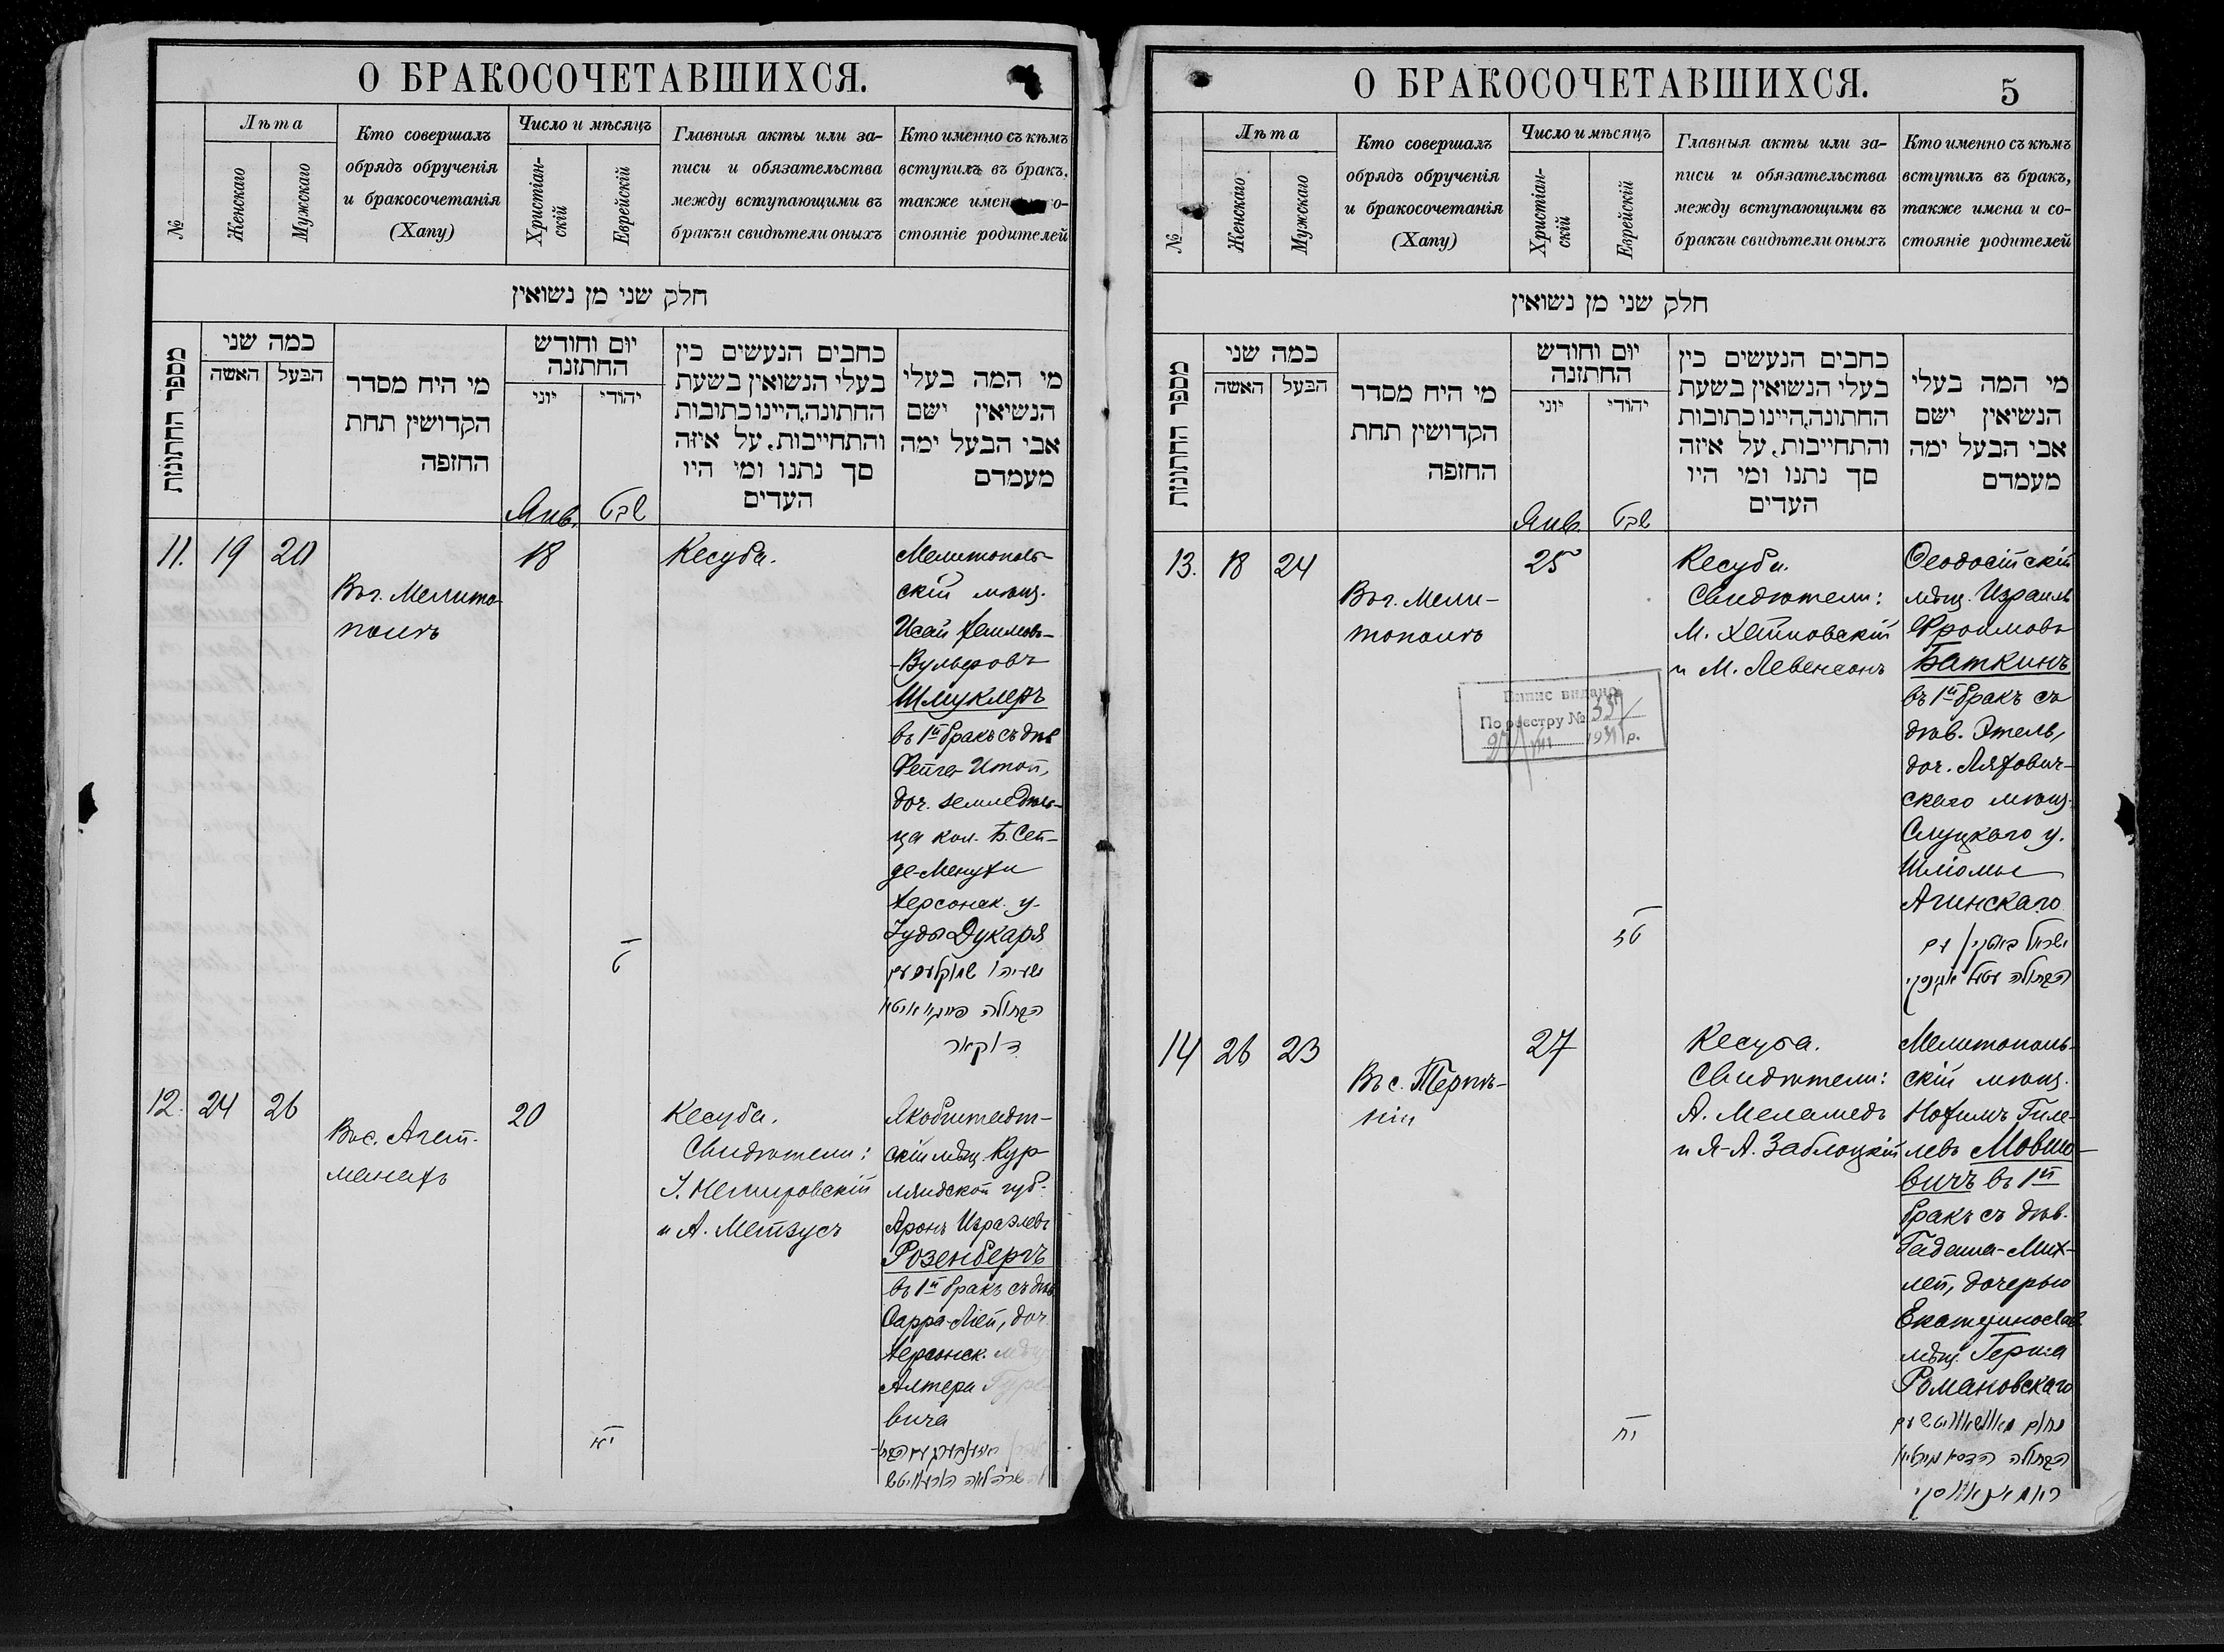 О БРАКОСОЧЕТАВШИХСЯ.
№
Лѣта
Женскаго
Мужскаго
Кто совершалъ
обрядъ обрученія
и бракосочетанія
(Хапу)
Число и мѣсяцъ
Христіан-
скій
Еврейскій
Главныя акты или за-
писи и обязательства
между вступающими въ
бракъи свидѣтели оныхъ
Кто именно съ кѣмъ
вступилъ въ бракъ,
также
стояніе родителей
חלק שני מן נשואין
מספר החתונות
כמה שני
האשה
הבעל
מי היח מסדר
הקדושין תחת
החופה
יום וחודש
החתונה
יוני
יהודי
כחבים הנעשים כין
בעלי הנשואין בשעת
החתונה,היינו כתובות
והתחייבות, על איזה
סך נתנו ומי היו
העדים
מי המה בעלי
הנשיאין ישם
אבי הבעל ימה
מעמדם
Янв.
שבט
11.
19
20
Въ г. Мелито-
полѣ
18
ט
Кесуба.
Мелитополь-
скій мѣщ.
Исай Хаимовъ-
-Вульфовъ
Шмуклеръ
въ 1й бракъ съ дѣв
Фейга-Итой,
доч. земледѣль-
ца кол. Б. Сей-
де-Менухи
Херсонск. у.
Іуды Дукаря
ישעיהו שמוקלער עם
הבתולה פייגא איטא
דוקאר
12.
24
26
Въ с. Агай-
манахъ
20
יא
Кесуба.
Свидѣтели:
І. Немировскій
и А. Мейзусъ
Якобштадт-
скій мѣщ. Кур-
ляндской губ.
Аронъ Израэлевъ
Розенбергъ
въ 1й бракъ съ дѣв.
Сарра-Леей, доч.
Херсонск. мѣщ
Алтера Гуре-
вича
О БРАКОСОЧЕТАВШИХСЯ.
5
№
Лѣта
Женскаго
Мужскаго
Кто совершалъ
обрядъ обрученія
и бракосочетанія
(Хапу)
Число и мѣсяцъ
Христіан-
скій
Еврейскій
Главныя акты или за-
писи и обязательства
между вступающими въ
бракъи свидѣтели оныхъ
Кто именно съ кѣмъ
вступилъ въ бракъ,
также имена и со-
стояніе родителей
חלק שני מן נשואין
מספר החתונות
כמה שני
האשה
הבעל
מי היח מסדר
הקדושין תחת
החופה
יום וחודש
החתונה
יוני
יהודי
כחבים הנעשים כין
בעלי הנשואין בשעת
החתונה,היינו כתובות
והתחייבות, על איזה
סך נתנו ומי היו
העדים
מי המה בעלי
הנשיאין ישם
אבי הבעל ימה
מעמדם
Янв.
שבט
13.
18
24
Въ г. Мели-
тополѣ
25
טז
Кесуба.
Свидѣтели:
М. Хейновскій
и М. Левенсонъ
Випис видано
По реєстру №
Ѳеодосійскій
мѣщ. Израиль
Фроимовъ
Баткинъ
въ 1й бракъ съ
дѣв. Этель,
доч. Ляхович-
скаго мѣщ.
Слуцкаго у.
Шліомы
Агинскаго
ישראל באטקין עם
הבתולה עטעל אגינסקי
14
26
23
Въ с. Терпѣ-
ніи
27
יח
Кесуба.
Свидѣтели:
А. Меламедъ
и Я-А. Заблоцкій
Мелитополь-
скій мѣщ.
Нохимъ Гиле-
левъ Мовшо-
вичъ въ 1й
бракъ съ дѣв.
Гадаша-Мих-
лей, дочерью
Екатеринослав.
мѣщ. Герша
Романовскаго
נחום מאוושאוויטש עם
הבתולה הדסא מיכליא
ראמאנאווסקי